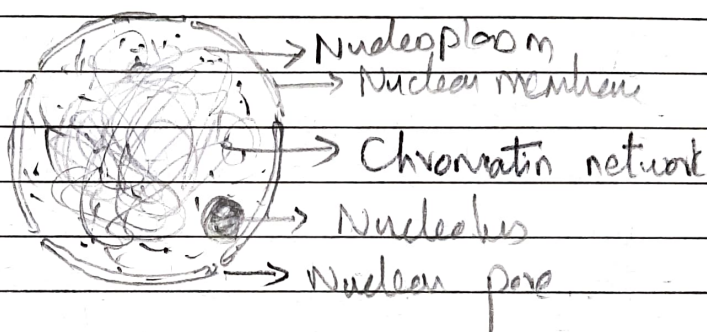 Nucleoplasm
Nuclear membrane
Chromatin network
Nucleolus
Nuclear pore